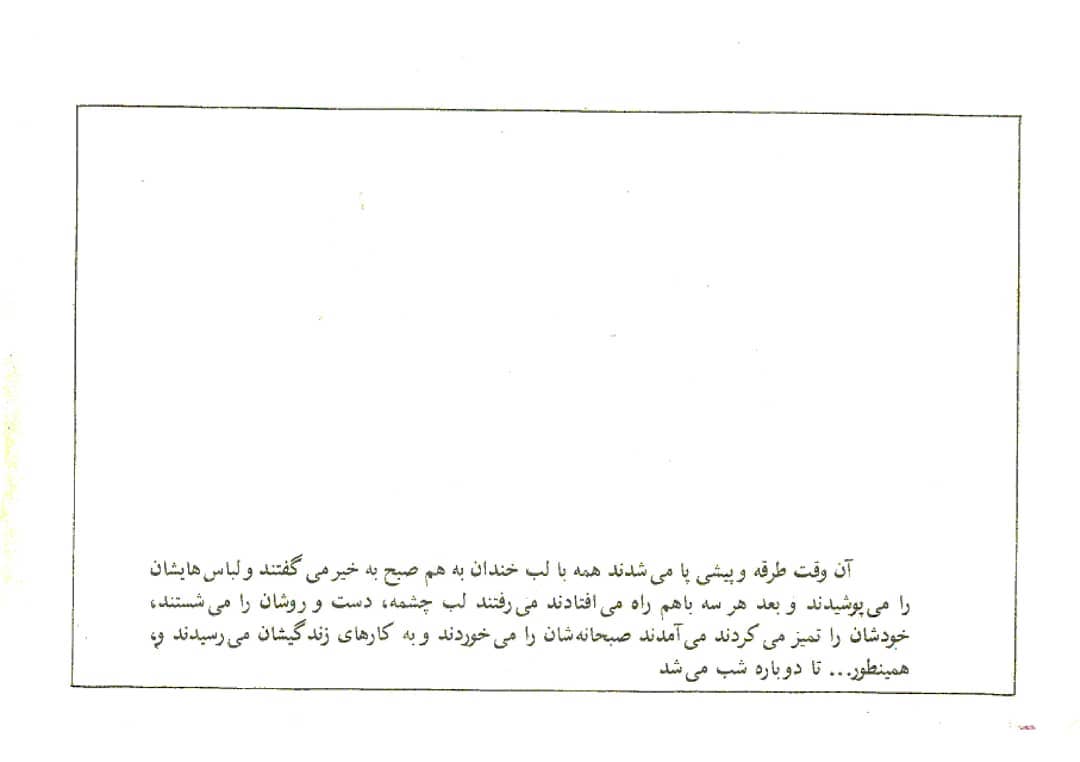 آن وقت طرقه و پیشی پا می‌شدند همه با لب خندان به هم صبح به خیر می‌گفتند و لباس‌هایشان
را می‌پوشیدند و بعد هر سه باهم راه می‌افتادند می‌رفتند لب چشمه، دست و روشان را می‌شستند،
خودشان را تمیز می‌کردند می‌آمدند صبحانه‌شان را می‌خوردند و به کارهای زندگیشان می‌رسیدند و،
همینطور... تا دوباره شب می‌شد